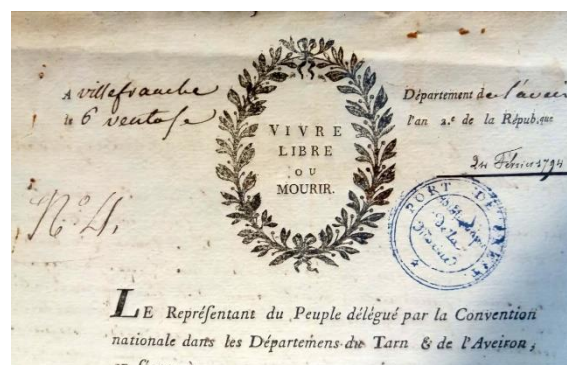 A villefranche
le 6 ventose
Département de l'aveir
l'an 2.e de la Répub.que
VIVRE
LIBRE
OU
MOURIR.
24 Février 1794
N.o 4.
PORT DE
De la
LE Repréſentant du Peuple délégué par la Convention
nationale dans les Départemens du Tarn & de l'Aveiron;